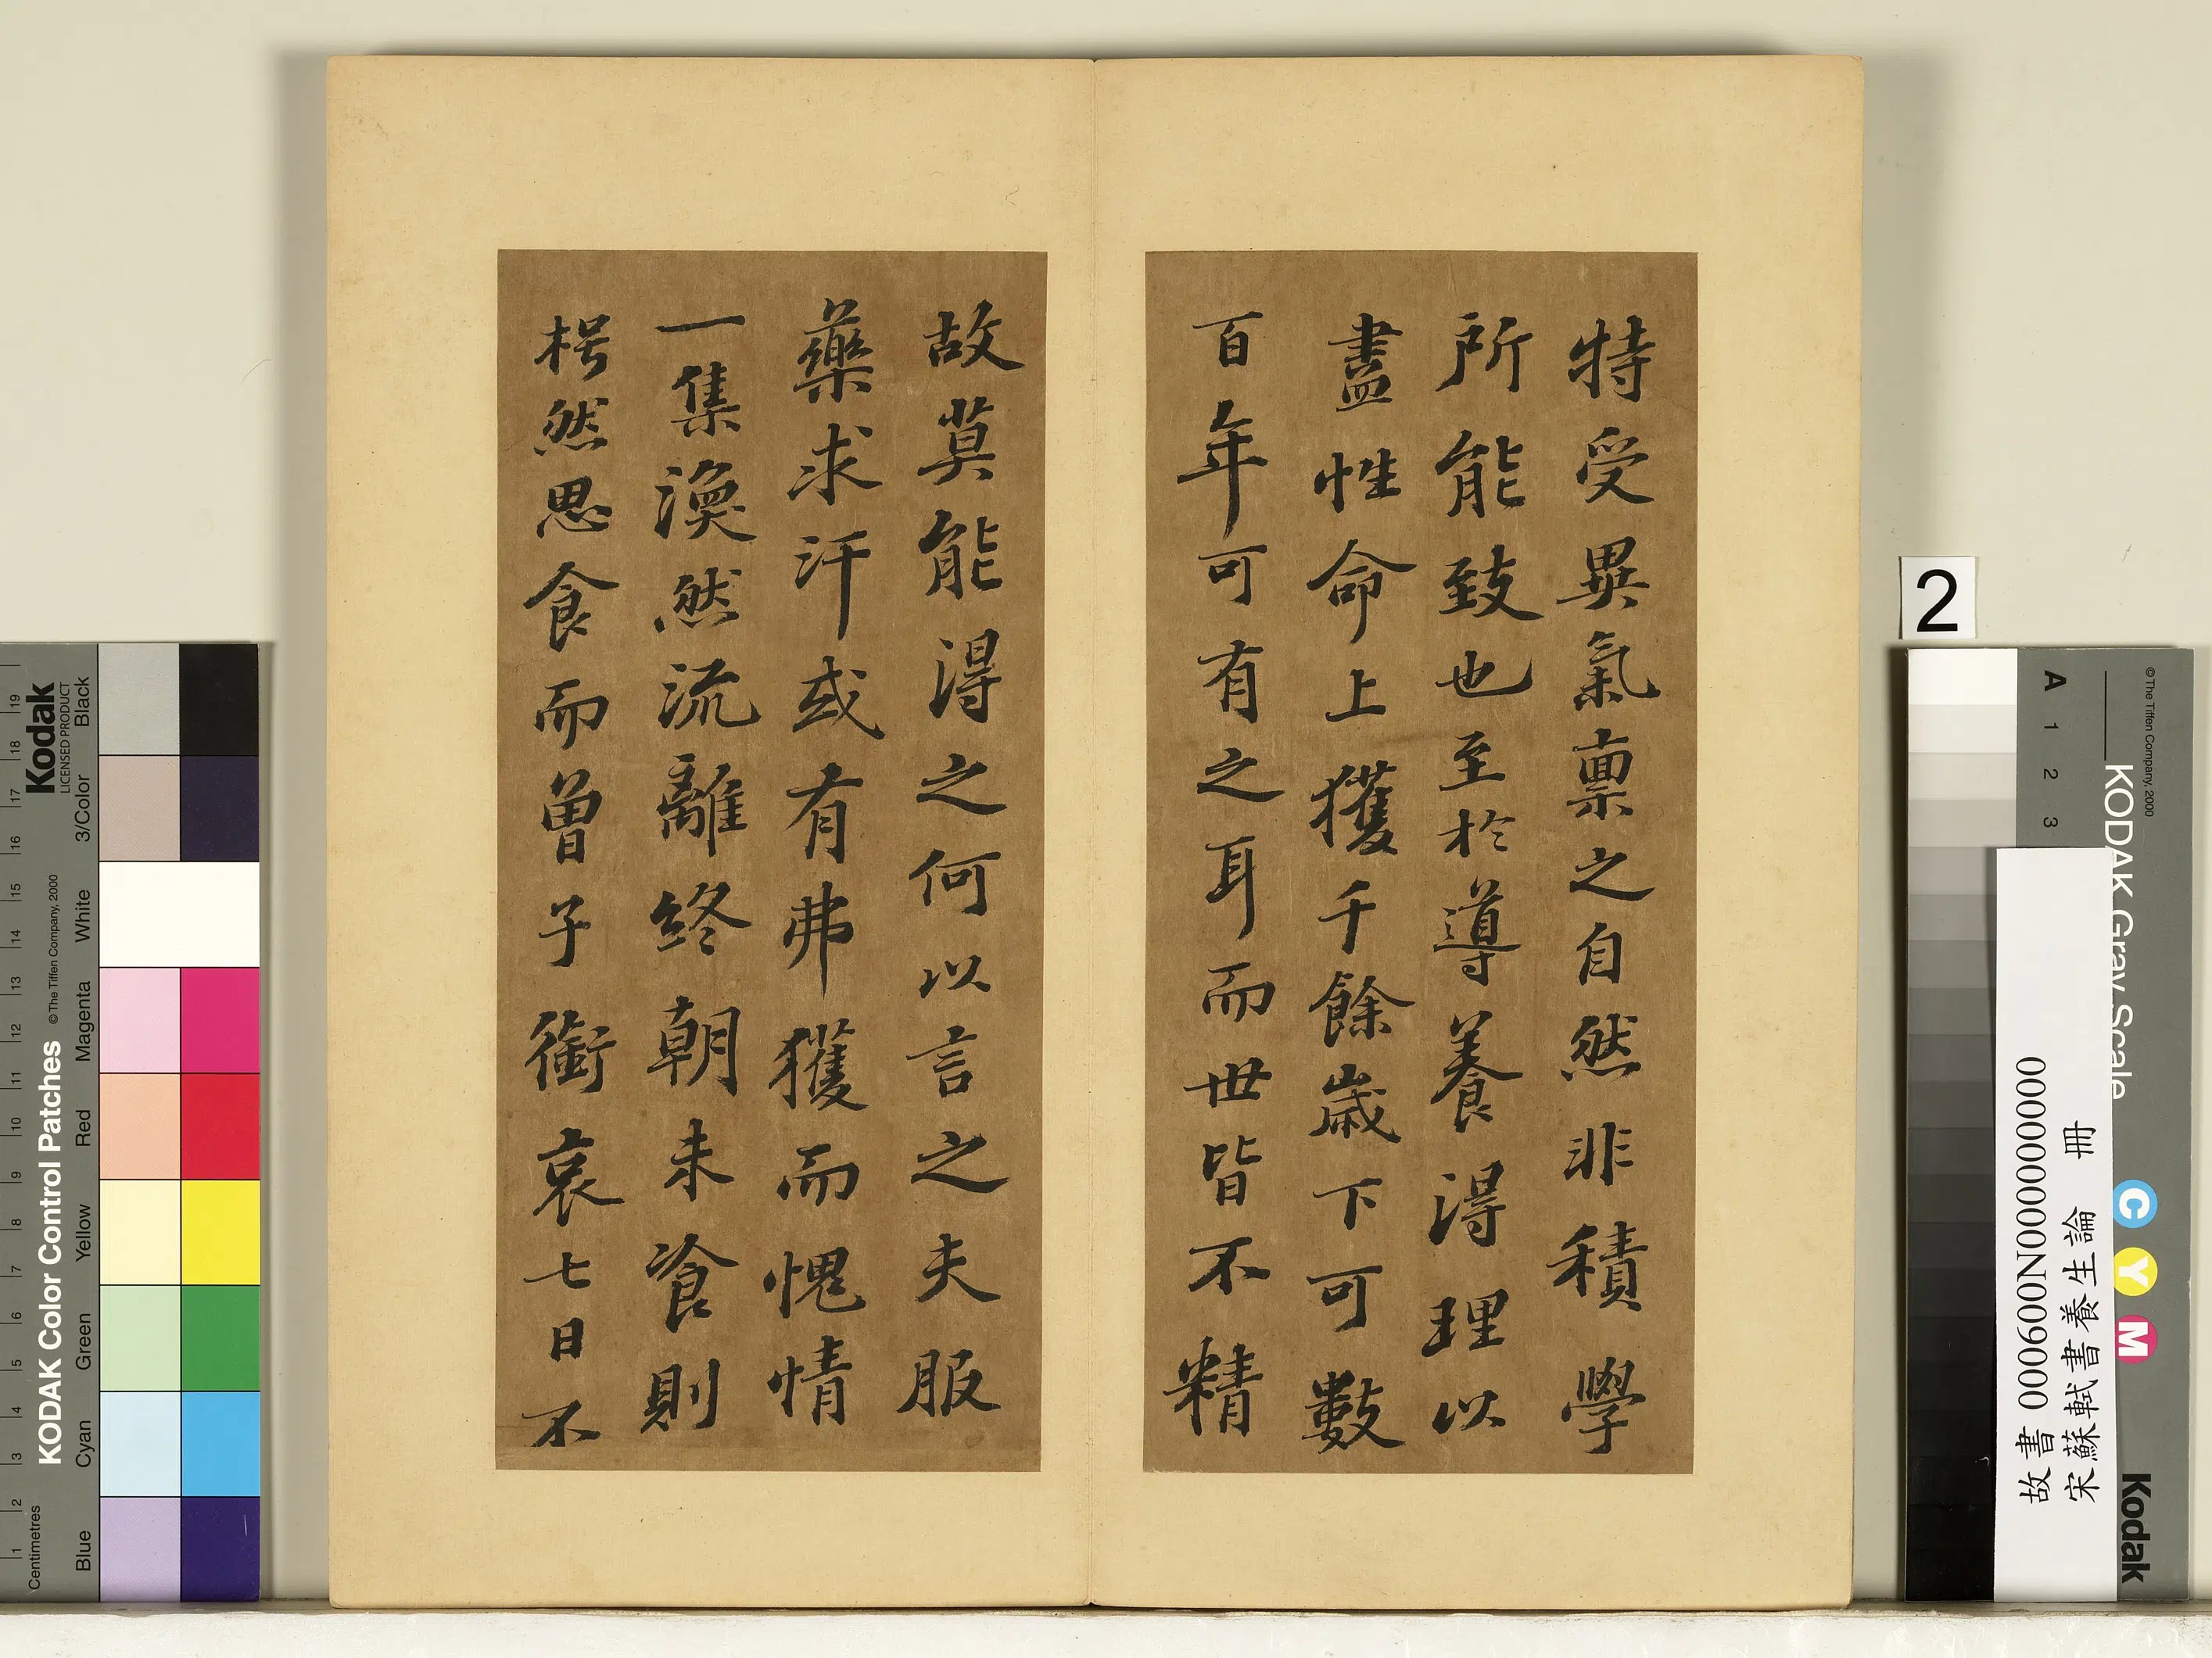 特受異氣稟之自然非積學
所能致也至於導養得理以
盡性命上獲千餘歲下可數
百年可有之耳而世皆不精
故莫能得之何以言之夫服
藥求汗或有弗獲而愧情
一集渙然流離終朝未飡則
枵然思食而曾子銜哀七日不
2
A 1 2 3
© The Tiffen Company, 2000
KODAK Gray Scale
C Y M
Kodak
故書 000600N000000000
宋蘇軾書養生論 冊
Kodak
LICENSED PRODUCT
KODAK Color Control Patches
© The Tiffen Company, 2000
Blue Cyan Green Yellow Red Magenta White 3/Color Black
Centimetres
1 2 3 4 5 6 7 8 9 10 11 12 13 14 15 16 17 18 19